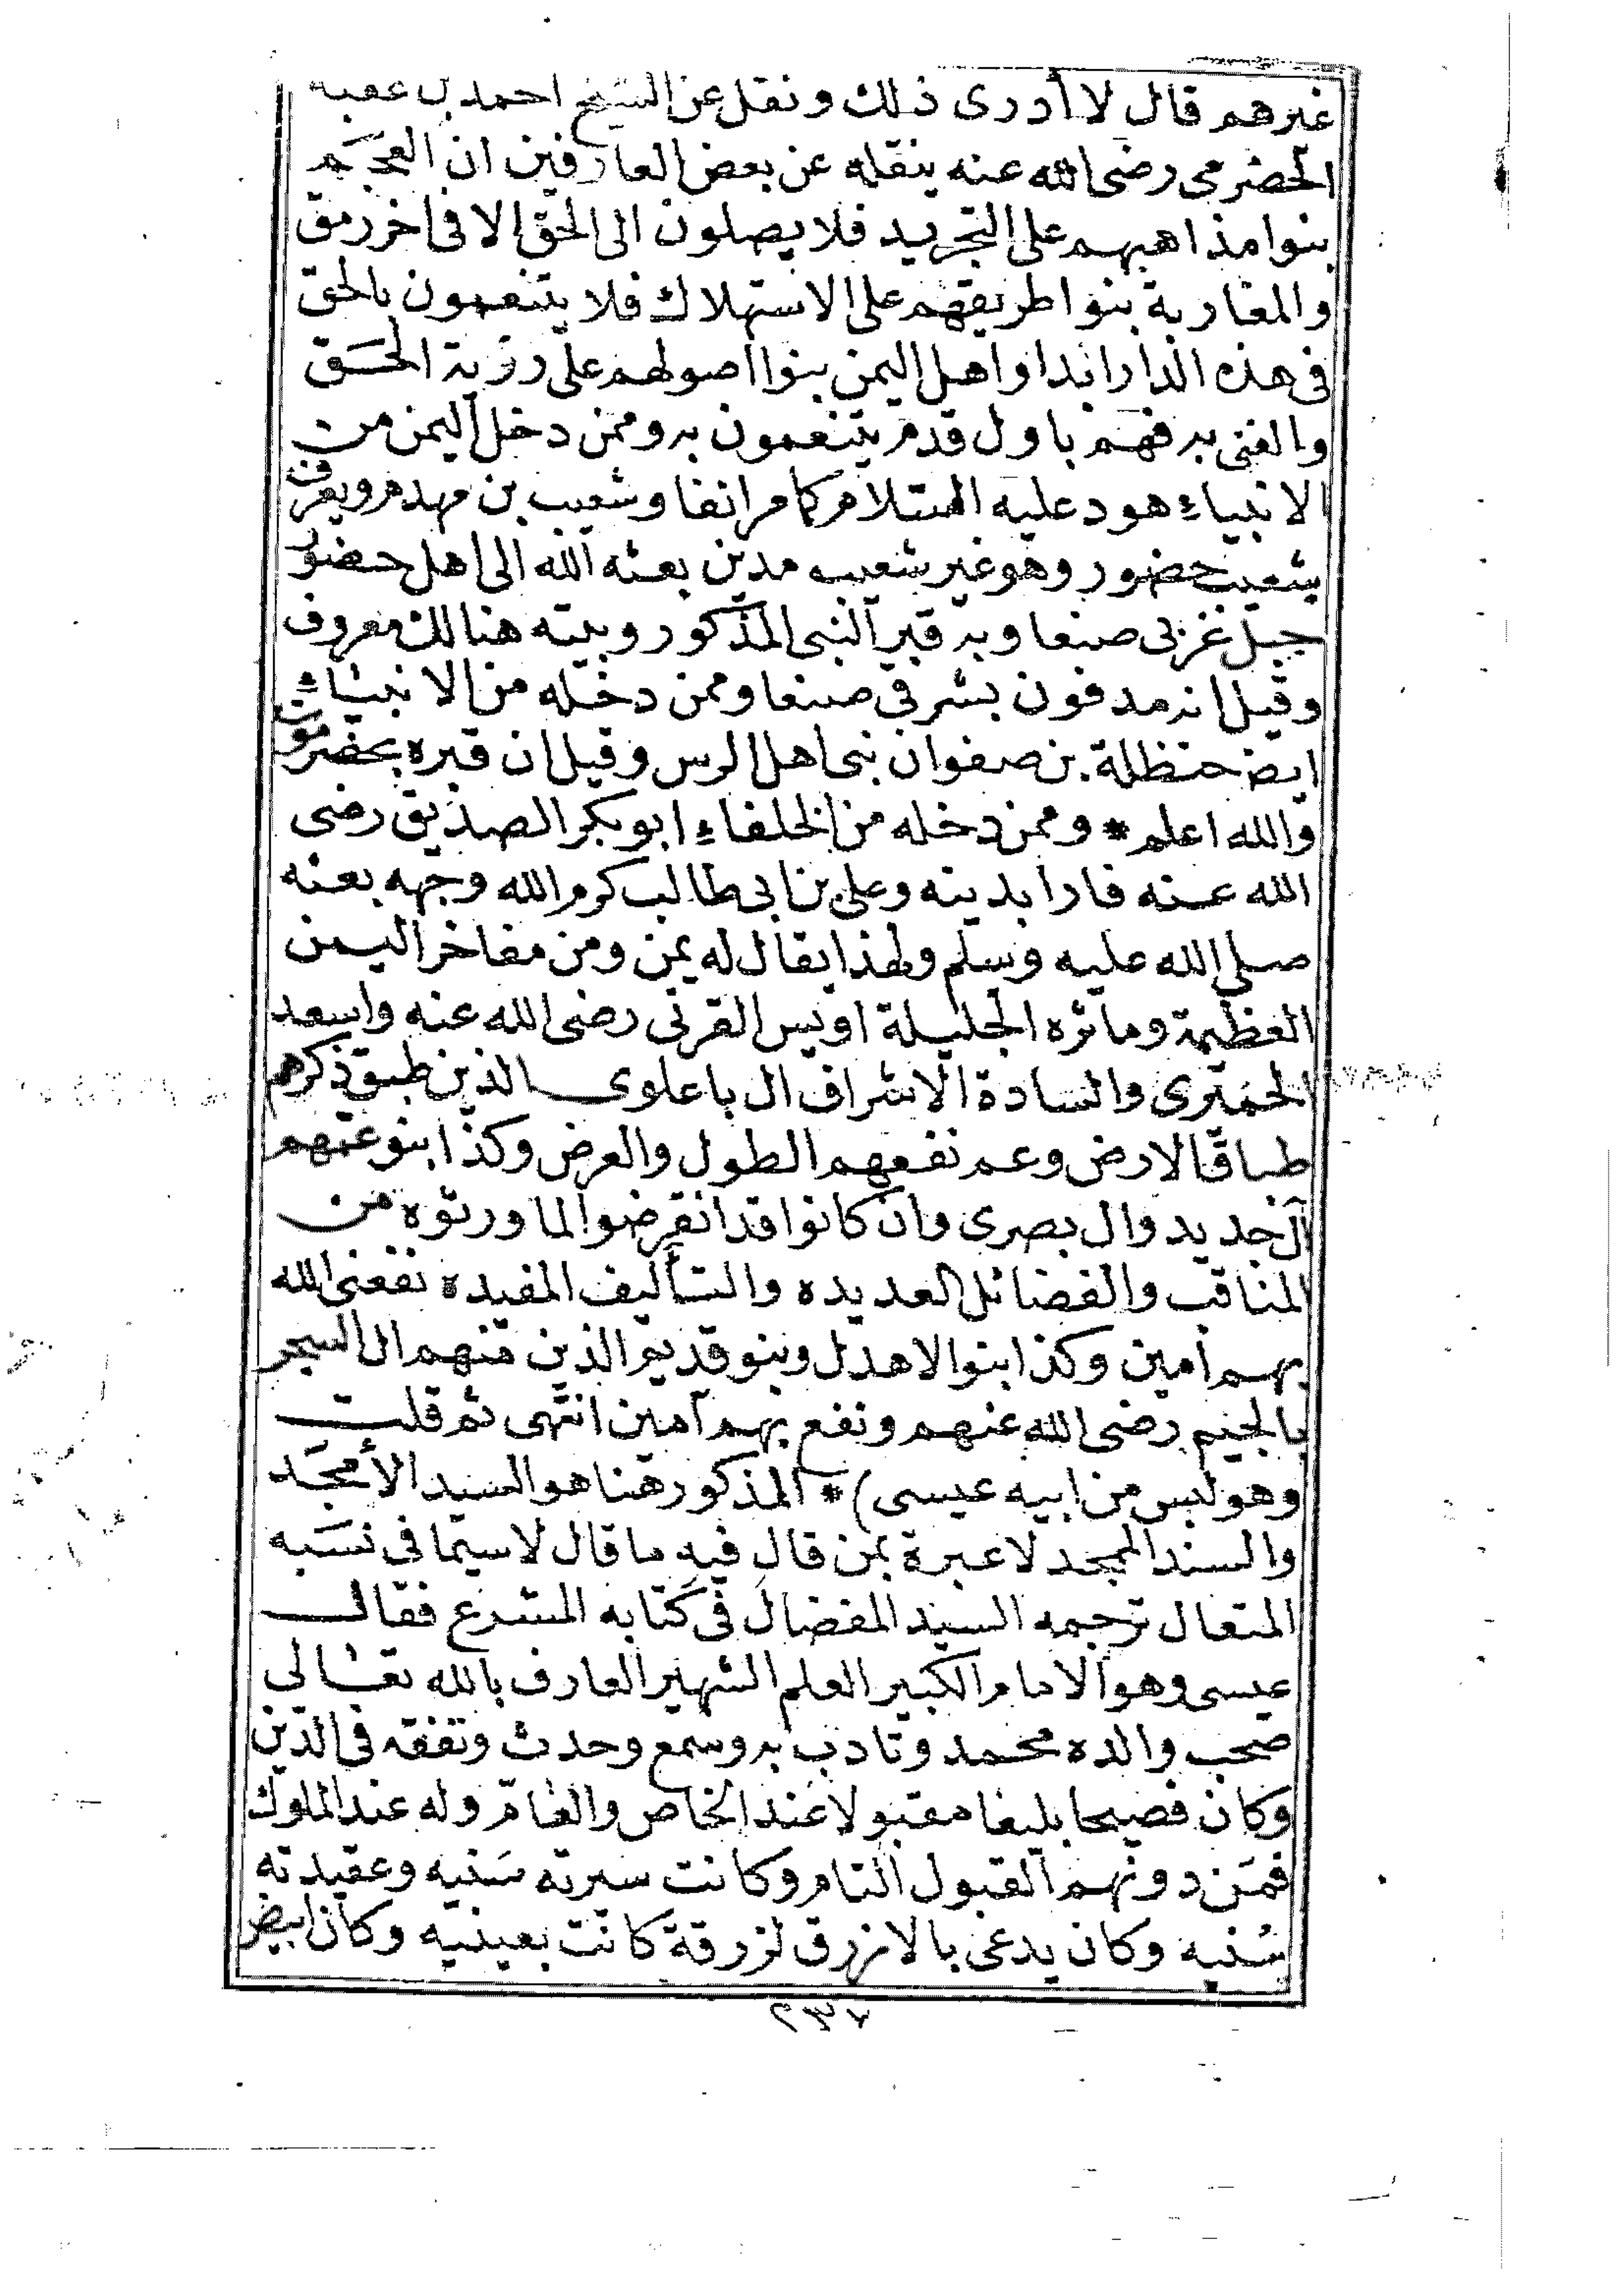 غيرهم قال لا أدرى ذلك ونقل عن الشيخ احمد بن عقبه
الحضرمى رضى الله عنه ينقله عن بعض العارفين ان العجَم
بنوا مذاهبهم على التجريد فلا يصلون الى الحق الا فى اخر رمق
والمغاربة بنوا طريقهم على الاستهلاك فلا يتنعمون بالحق
فى هذه الدار ابدا واهل اليمن بنوا اصولهم على رؤية الحَق
والغنى به فهم باول قدم يتنعمون به وممن دخل اليمن من
الانبياء هود عليه السلام كما مر انفا وشعيب بن مهدم ويعرف
بشعيب حضور وهو غير شعيب مدين بعثه الله الى اهل حضور
جبل غربى صنعا وبه قبر النبى المذكور وبيته هنالك معروف
وقيل انه مدفون بشرقى صنعا وممن دخله من الانبياء
ايض حنظلة بن صفوان نبى اهل الرس وقيل ان قبره بحضرموت
والله اعلم * وممن دخله من الخلفاء ابو بكر الصديق رضى
الله عنه فارا بدينه وعلى بن ابى طالب كرم الله وجهه بعثه
صلى الله عليه وسلم ولهذا يقال له يمن ومن مفاخر اليمن
العظيمة وماثره الجليلة اويس القرنى رضى الله عنه واسعد
الحميرى والسادة الاشراف ال باعلوى الذين طبق ذكرهم
طباق الارض وعم نفعهم الطول والعرض وكذا بنو عمهم
آل جديد وال بصرى وان كانوا قد انقرضوا لما ورثوه من
المناقب والفضائل العديده والتأليف المفيدة نفعنى الله
بهم أمين وكذا بنو الاهدل وبنو قديم الذين منهم ال السجر
بالجيم رضى الله عنهم ونفع بهم آمين انتهى ثم قلت
وهو لبس من ابيه عيسى) * المذكور هنا هو السيد الأمجَد
والسند الممجد لا عبرة بمن قال فيه ما قال لاسيما فى نسَبه
المتعال ترجمه السيد المفضال فى كتابه المشرع فقال
عيسى وهو الامام الكبير العلم الشهير العارف بالله تعالى
صحب والده محمد وتادب به وسمع وحدث وتفقه فى الدّين
وكان فصيحا بليغا مقبولا عند الخاص والعامّ وله عند الملوك
فمَن دونهم القبول التام وكانت سيرته سَنيه وعقيدته
سُنيه وكان يدعى بالازرق لزرقة كانت بعينيه وكان ابيض
٢٣٧